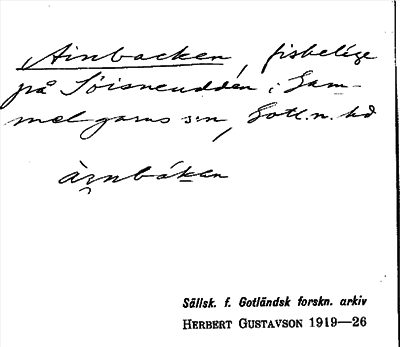 Ainbacken, fiskeläge
på Söisneudden i Gam-
melgarns s:n, Gotl. n. hd
àinbákan
Sällsk. f. Gotländsk forskn. arkiv
HERBERT GUSTAVSON 1919—26